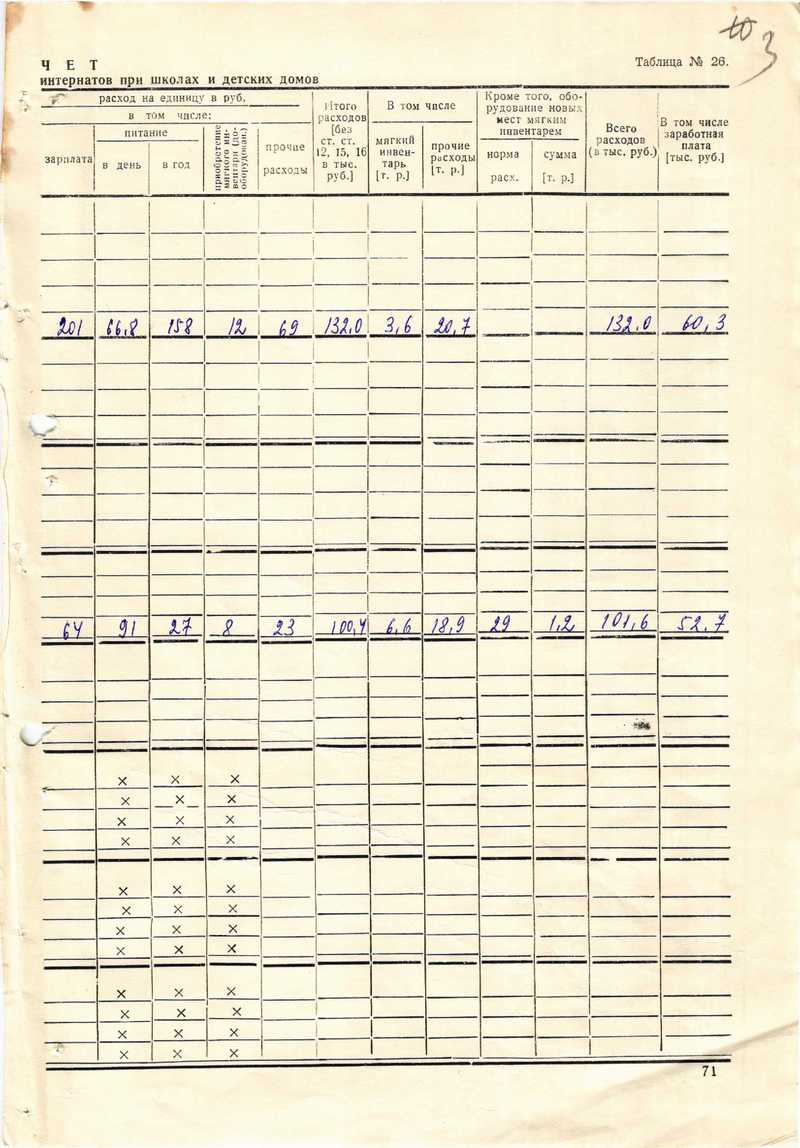 3
Ч Е Т
Таблица № 26.
интернатов при школах и детских домов
расход на единицу в руб,
в том числе:
зарплата
питание
в день
в год
приобретение мягкого ин-вентаря (до-оборудован.)
прочие
расходы
Итого
расходов
[без
ст. ст.
12, 15, 16
в тыс.
руб.]
В том числе
мягкий
инвен-
тарь
[т. р.]
прочие
расходы
[т. р.]
Кроме того, обо-
рудование новых
мест мягким
инвентарем
норма
расх.
сумма
[т. р.]
Всего
расходов
(в тыс. руб.)
В том числе
заработная
плата
[тыс. руб.]
201 66,8 158 12 69 132,0 3,6 20,7 132.0 60,3
64 91 27 8 23 100,4 6,6 18,9 29 1,2 101,6 52.7
× × ×
× × ×
× × ×
× × ×
× × ×
× × ×
× × ×
× × ×
× × ×
× × ×
× × ×
× × ×
71